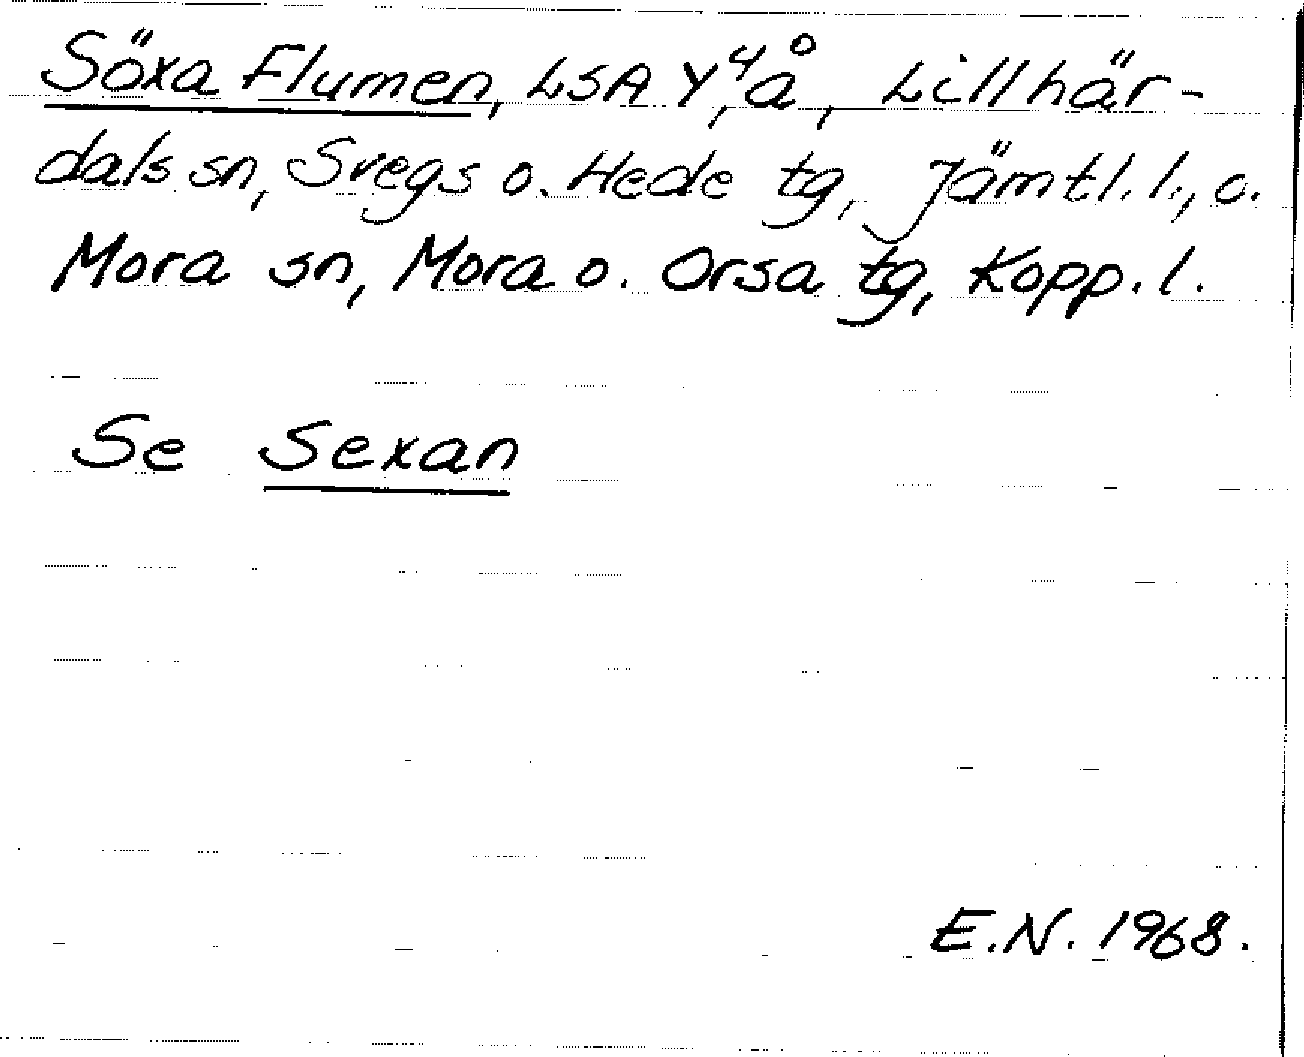 Söxa Flumen, LSA Y⁴, å, Lillhär-
dals sn, Svegs o. Hede tg, Jämtl. l., o.
Mora sn, Mora o. Orsa tg, Kopp. l.
Se Sexan
E.N. 1968.